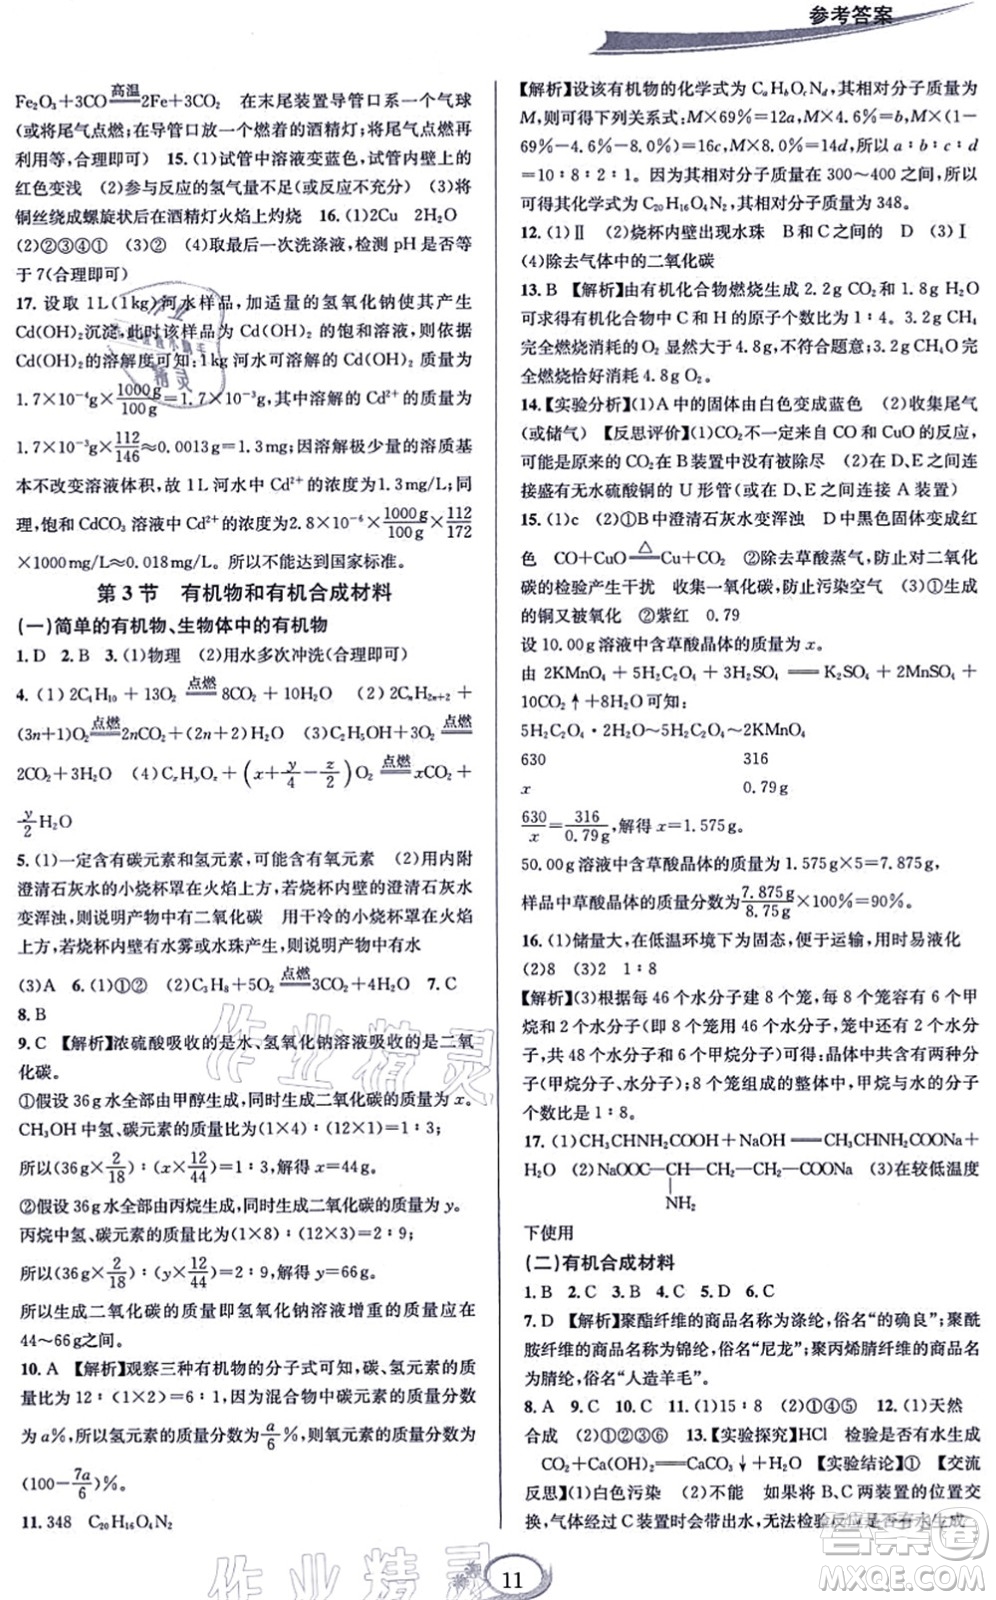 参考答案
高温
Fe₂O₃+3CO══2Fe+3CO₂ 在末尾装置导管口系一个气球
(或将尾气点燃;在导管口放一个燃着的酒精灯;将尾气点燃再
利用等,合理即可) 15.(1)试管中溶液变蓝色,试管内壁上的
红色变浅 (2)参与反应的氢气量不足(或样品过多) (3)将
铜丝绕成螺旋状后在酒精灯火焰上灼烧 16.(1)2Cu 2H₂O
(2)②③④① (3)② (4)取最后一次洗涤液,检测 pH 是否等
于7(合理即可)
17. 设取 1L(1kg)河水样品,加适量的氢氧化钠使其产生
Cd(OH)₂沉淀,此时该样品为 Cd(OH)₂ 的饱和溶液,由题给
的溶解度可知:1kg 河水可溶解的 Cd(OH)₂ 质量为
1.7×10⁻⁴g×1000g/100g=1.7×10⁻³g,其中镉(Cd²⁺)的质量为
1.7×10⁻³g×112/146≈0.0013g=1.3mg;因溶解极少量的溶质
基本不改变溶液体积,故 1L 河水中 Cd²⁺ 的浓度为1.3mg/L。同
理,饱和 CdCO₃ 溶液中 Cd²⁺的浓度为2.8×10⁻⁶×1000g/100g×112/172
×1000mg/L≈0.018mg/L。所以不能达到国家标准。
第 3 节 有机物和有机合成材料
(一)简单的有机物、生物体中的有机物
1. D 2. B 3. (1)物理 (2)用水多次冲洗(合理即可)
4. (1) 2C₄H₁₀ + 13O₂ 点燃══ 8CO₂ + 10H₂O (2) 2CₙH₂ₙ₊₂ +
(3n+1)O₂点燃══2nCO₂+(2n+2)H₂O (3)C₂H₅OH+3O₂点燃══
2CO₂+3H₂O (4)CₓHᵧO_z+(x+y/4−z/2)O₂ 点燃══ xCO₂ +
y/2H₂O
5. (1)一定含有碳元素和氢元素,可能含有氧元素 (2)用内附
澄清石灰水的小烧杯罩在火焰上方,若烧杯内壁的澄清石灰水
变浑浊,则说明产物中有二氧化碳 用干冷的小烧杯罩在火焰
上方,若烧杯内壁有水雾或水珠产生,则说明产物中有水
(3)A 6. (1)①② (2)C₃H₈+5O₂点燃══3CO₂+4H₂O 7. C
8. B
9. C 【解析】浓硫酸吸收的是水、氢氧化钠溶液吸收的是二氧
化碳。
①假设36g水全部由甲醇生成,同时生成二氧化碳的质量为 x。
CH₃OH 中氢、碳元素的质量比为(1×4)∶(12×1)=1∶3;
所以(36g×2/18)∶(x×12/44)=1∶3,解得 x=44g。
②假设36g水全部由丙烷生成,同时生成二氧化碳的质量为 y。
丙烷中氢、碳元素的质量比为(1×8)∶(12×3)=2∶9;
所以(36g×2/18)∶(y×12/44)=2∶9,解得 y=66g。
所以生成二氧化碳的质量即氢氧化钠溶液增重的质量应在
44～66g之间。
10. A 【解析】观察三种有机物的分子式可知,碳、氢元素的质
量比为 12∶(1×2)=6∶1,因为混合物中碳元素的质量分数
为a%,所以氢元素的质量分数为a/6%,则氧元素的质量分数为
(100−7a/6)%。
11. 348 C₂₀H₁₆O₄N₂
【解析】设该有机物的化学式为 CₐH_bO_cN_d,其相对分子质量为
M,则可得下列关系式:M×69%=12a,M×4.6%=b,M×(1−
69%−4.6%−8.0%)=16c,M×8.0%=14d,所以 a∶b∶c∶d
=10∶8∶2∶1。因为该有机物的相对分子质量在 300～400 之间,所
以可得其化学式为 C₂₀H₁₆O₄N₂,最大相对分子质量为348。
12. (1)Ⅱ (2)烧杯内壁出现水珠 B和C之间的 D (3)Ⅰ
(4)除去气体中的二氧化碳
13. B 【解析】由有机化合物燃烧生成 2.2g CO₂ 和 1.8g H₂O
可求得有机化合物中 C 和 H 的原子个数比为 1∶4。3.2g CH₄
完全燃烧消耗的 O₂ 质量大于4.8g,不合题意;3.2g CH₄O 完
全燃烧恰好消耗 4.8g O₂。
14.【实验分析】(1)A 中的固体由白色变成蓝色 (2)收集尾气
(或储气) 【反思评价】(1)CO₂不一定来自 CO 和 CuO 的反应,
可能是原来的 CO₂ 在 B 装置中没被除尽 (2)在 D、E之间连
接盛有无水硫酸铜的 U 形管(或在 D、E之间连接B装置)
15. (1)c (2)①B中澄清石灰水变浑浊 D中黑色固体变成红
色 CO+CuO△══Cu+CO₂ ②除去草酸蒸气,防止对二氧化
碳的检验产生干扰 收集一氧化碳,防止污染空气 (3)①生成
的铜又被氧化 ②紫红 0.79
设 10.00g 溶液中含草酸晶体的质量为 x。
由 2KMnO₄ + 5H₂C₂O₄ + 3H₂SO₄ ══ K₂SO₄ + 2MnSO₄ +
10CO₂↑+8H₂O 可知:
5H₂C₂O₄·2H₂O～2KMnO₄
630 316
x 0.79g
630/x=316/0.79g,解得 x=1.575g。
50.00g 溶液中含草酸晶体的质量为 1.575g×5=7.875g,
样品中草酸晶体的质量分数为7.875g/8.75g×100%=90%。
16. (1)储量大,在低温环境下为固态,便于运输,用时易液化
(2)8 (3)2 1∶8
【解析】(3)根据每 46 个水分子建 8 个笼,每 8 个笼容有 6 个甲
烷和 2 个水分子(即 8 个笼用 46 个水分子,笼中容有 6 个甲
烷、2 个水分子)可得:晶体中共含有两种分
子(甲烷分子、水分子);8 个笼组成的整体中,甲烷与水的分子
个数比是 1∶8。
17. (1) CH₃CHNH₂COOH + NaOH ══ CH₃CHNH₂COONa +
H₂O (2) NaOOC—CH—CH₂—CH₂—COONa (3)在较低温度
NH₂
下使用
(二)有机合成材料
1. B 2. B 3. B 4. C 5. D 6. C
7. D 【解析】聚酯纤维的商品名称为涤纶,俗名“的确良”;聚酰
胺纤维的商品名称为锦纶,俗名“尼龙”;聚丙烯腈纤维的商品名称
为腈纶,俗名“人造羊毛”。
8. A 9. C 10. C 11. (1)15∶8 (2)①④⑤ 12. (1)天然
合成 (2)①②③⑥ 13.【实验探究】HCl 检验是否有水生成
CO₂+Ca(OH)₂══CaCO₃↓+H₂O 【实验结论】① 【交流
反思】(1)白色污染 (2)不能 如果将 B、C 两装置的位置交
换,气体经过 C 装置时会带出水,无法检验反应是否有水生成
11
作业精灵
作业精灵
答案圈
MXQE.COM